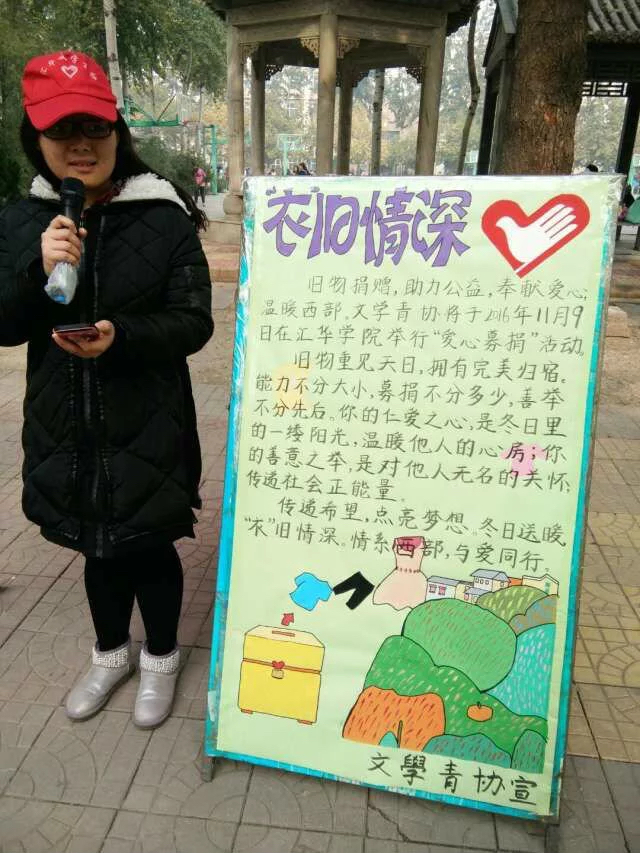 "衣"旧情深
旧物捐赠,助力公益,奉献爱心,
温暖西部。文学青协将于2016年11月9
日在汇华学院举行"爱心募捐"活动。
旧物重见天日,拥有完美归宿。
能力不分大小,募捐不分多少,善举
不分先后。你的仁爱之心,是冬日里
的一缕阳光,温暖他人的心房;你
的善意之举,是对他人无名的关怀;
传递社会正能量。
传递希望,点亮梦想。冬日送暖,
"衣"旧情深。情系西部,与爱同行。
文學青协宣